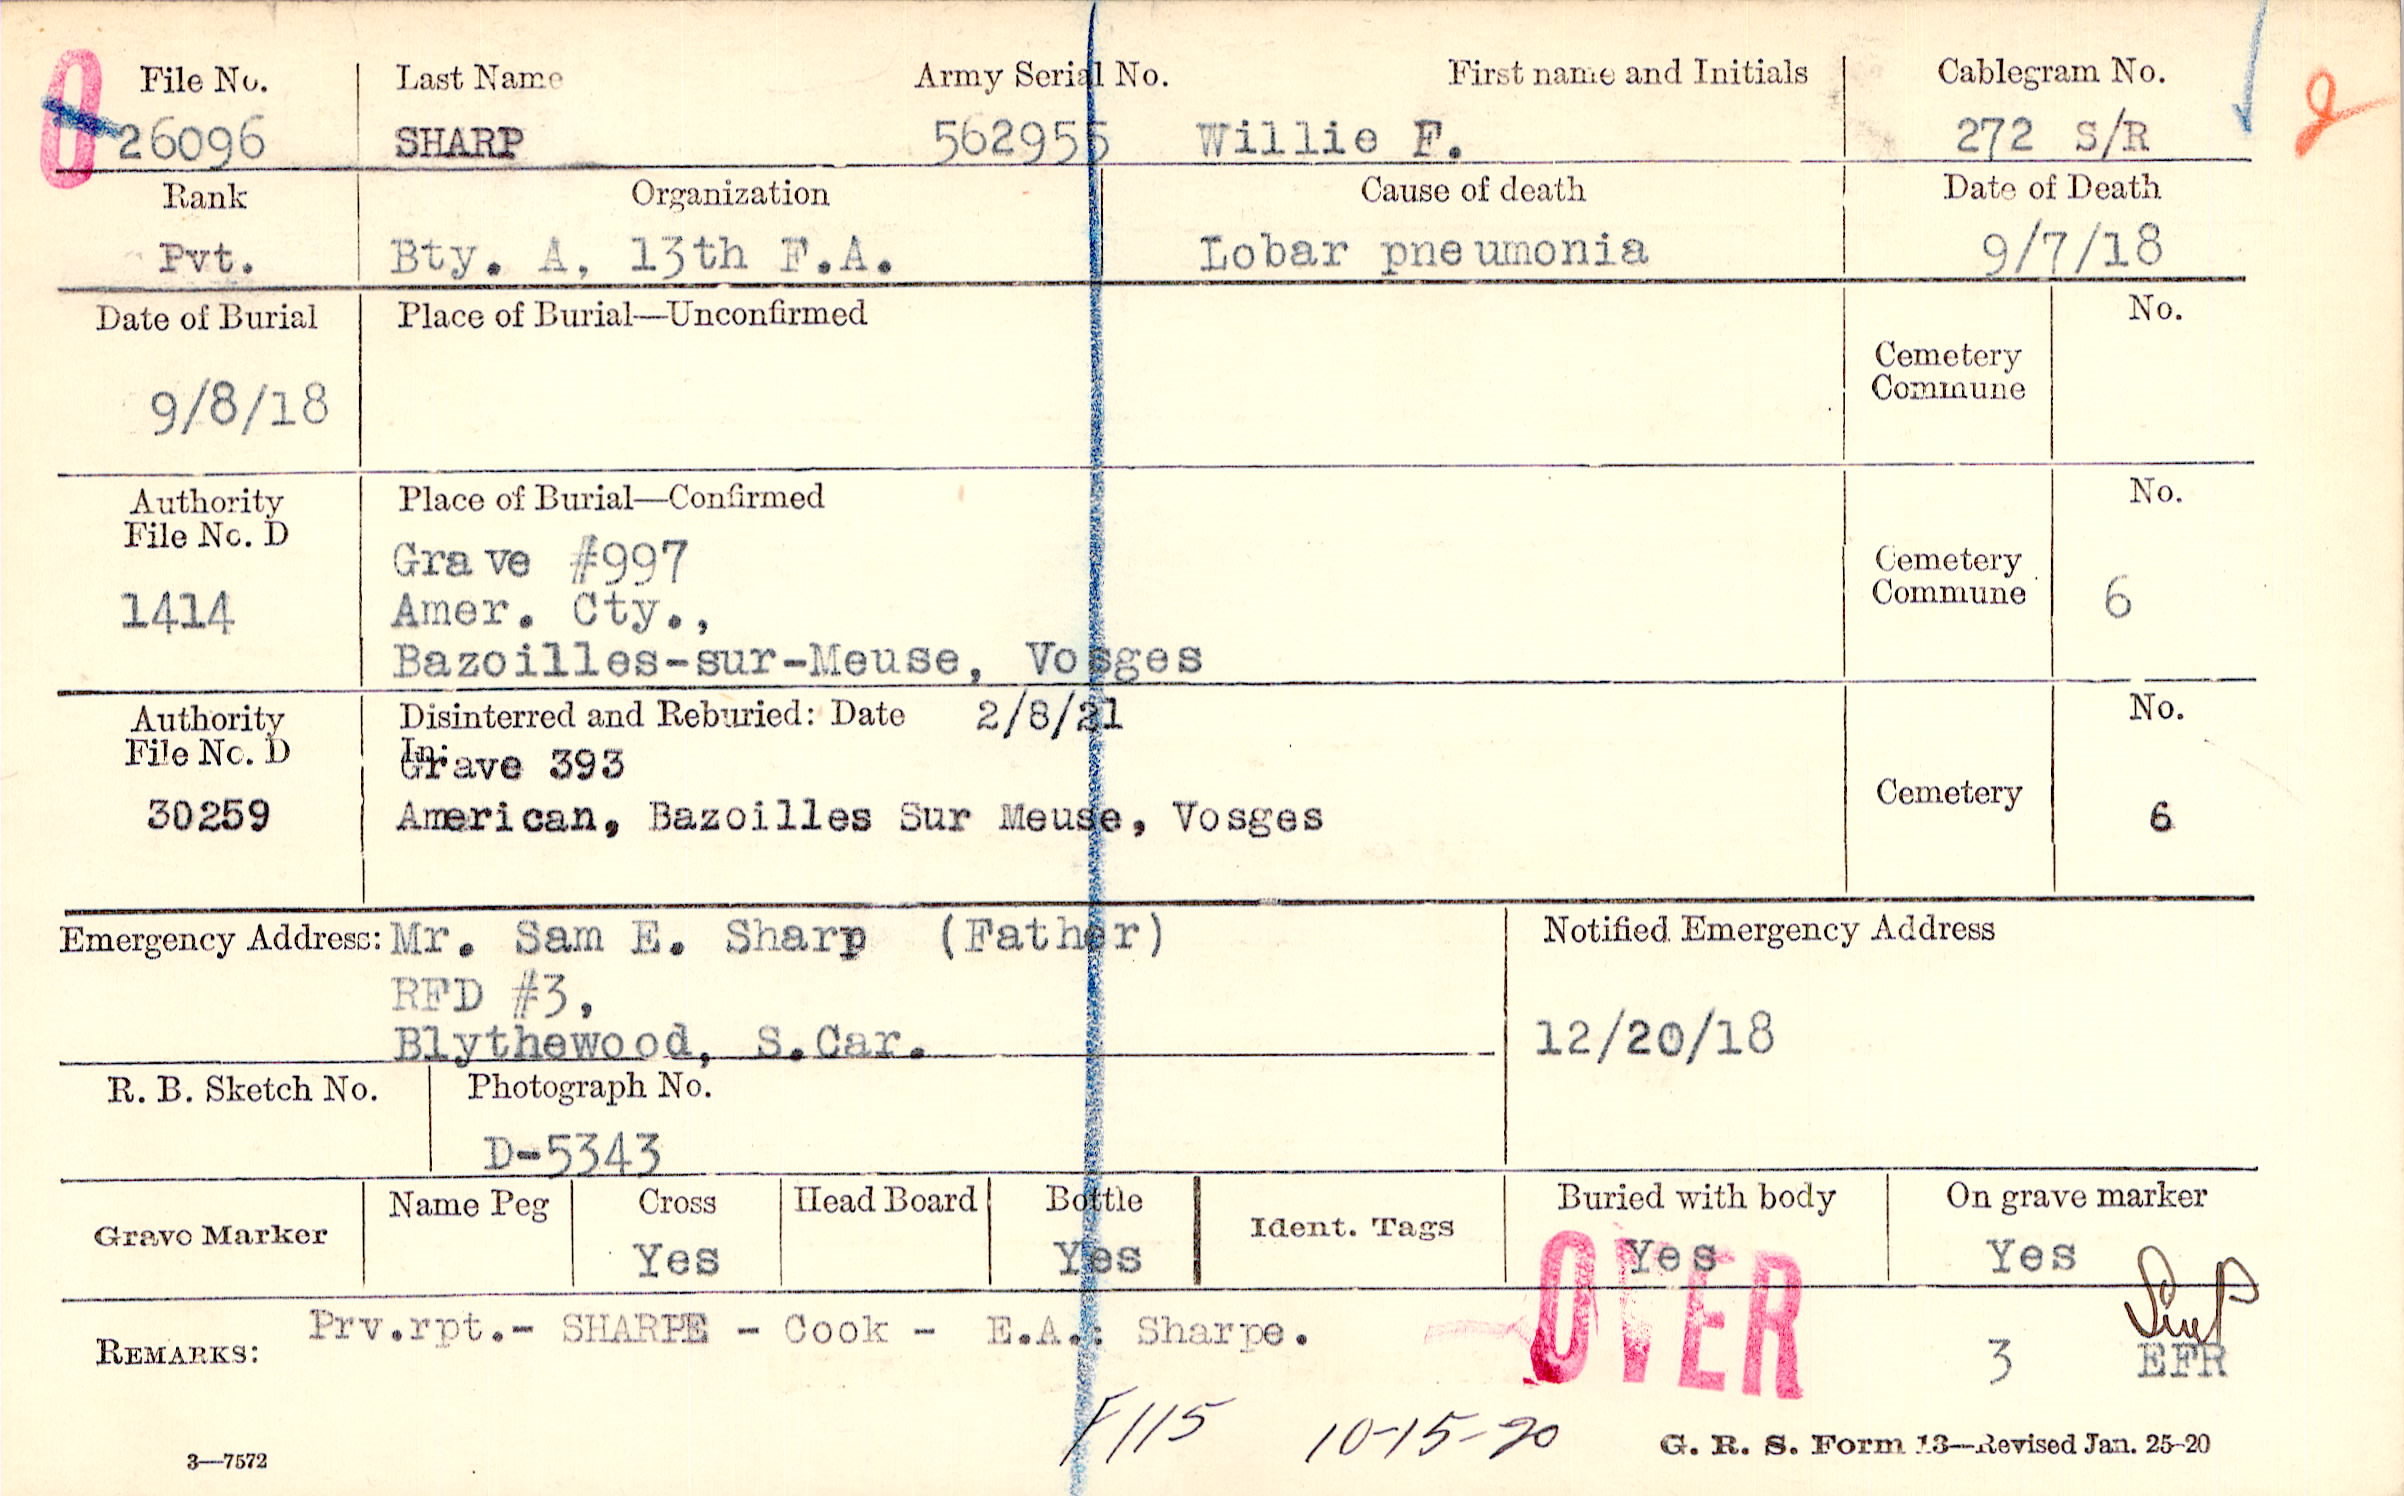 File No. Last Name Army Serial No. First name and Initials Cablegram No.
26096 SHARP 562955 Willie F. 272 S/R
Rank Organization Cause of death Date of Death
Pvt. Bty. A, 13th F.A. Lobar pneumonia 9/7/18
Date of Burial Place of Burial—Unconfirmed No.
Cemetery
Commune
9/8/18
Authority Place of Burial—Confirmed No.
File No. D
Grave #997
Cemetery
Commune
1414 Amer. Cty., 6
Bazoilles-sur-Meuse, Vosges
Authority Disinterred and Reburied: Date 2/8/21 No.
File No. D In:
Grave 393
Cemetery
30259 American, Bazoilles Sur Meuse, Vosges 6
Emergency Address: Mr. Sam E. Sharp (Father) Notified Emergency Address
RFD #3,
Blythewood, S.Car. 12/20/18
R. B. Sketch No. Photograph No.
D-5343
Grave Marker Name Peg Cross Head Board Bottle Ident. Tags Buried with body On grave marker
Yes Yes Yes Yes
OVER
REMARKS: Prv.rpt.- SHARPE - Cook - E.A.: Sharpe. 3 EFR
F115 10-15-20
3—7572 G. R. S. Form 13—Revised Jan. 25-20